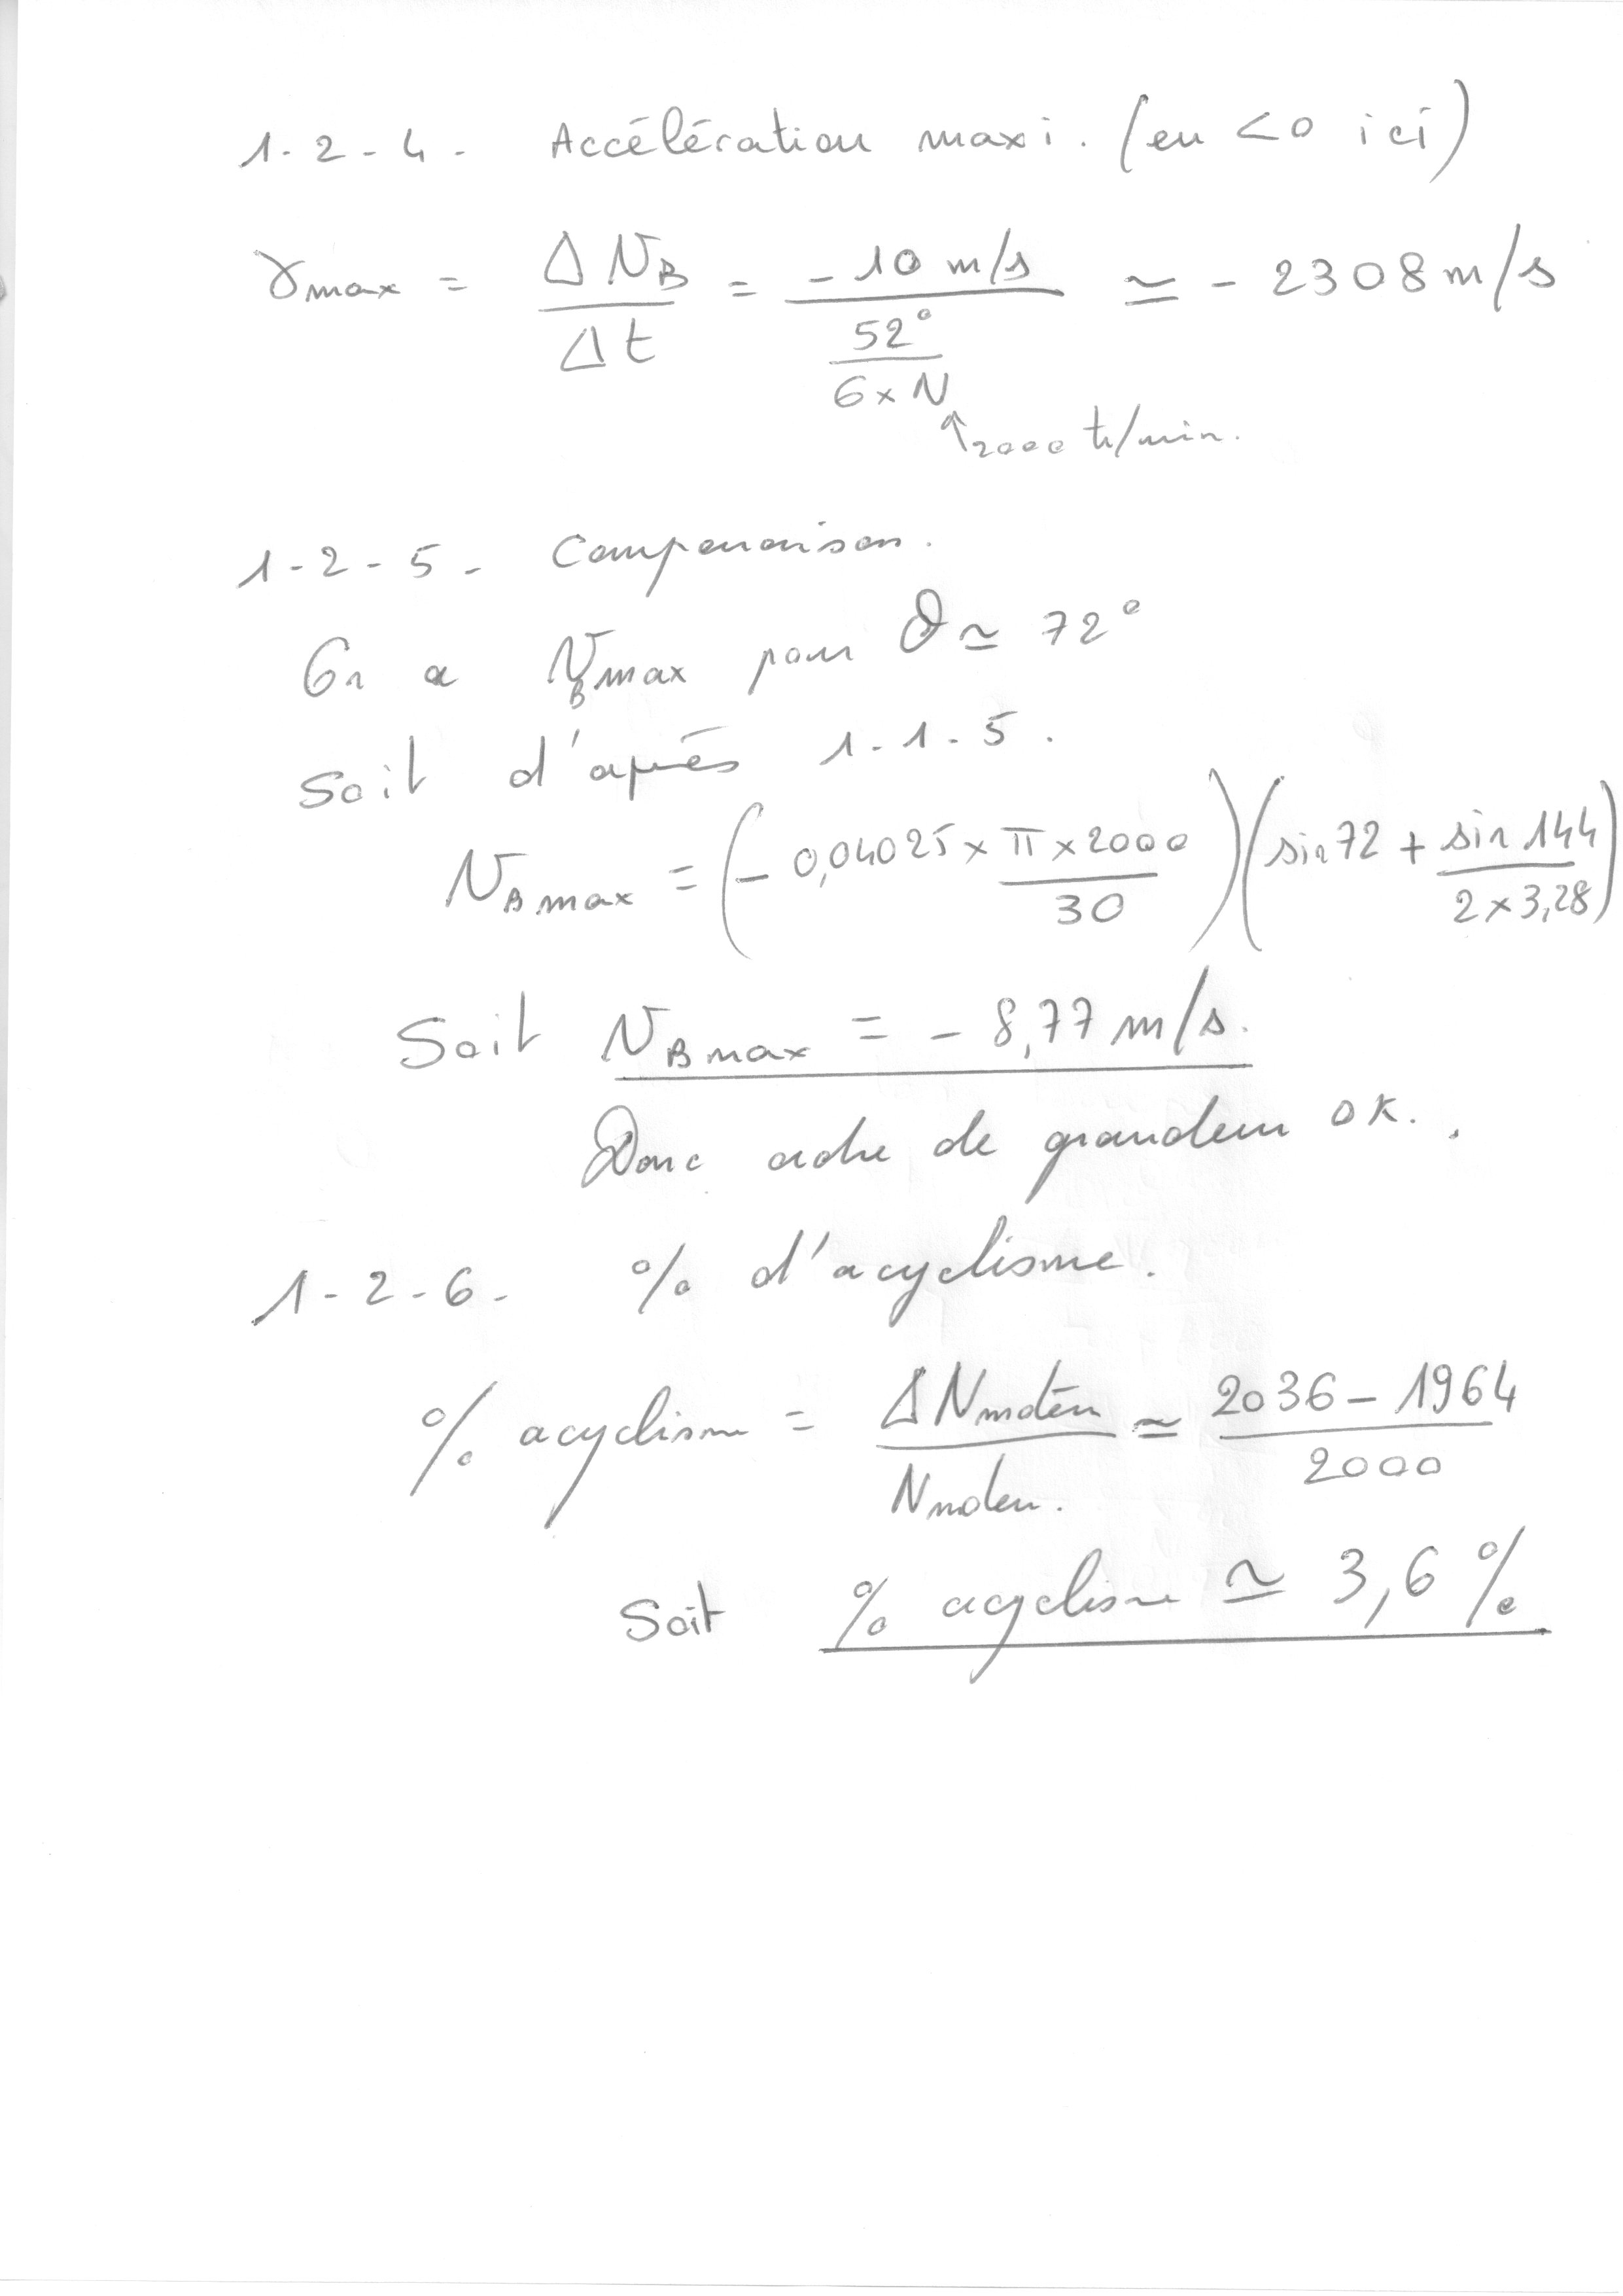 1-2-4- Accélération maxi. (en <0 ici)
γmax = ΔVB / Δt = -10 m/s / (52° / 6×N) ≃ - 2308 m/s
↑2000 tr/min.
1-2-5- Comparaison.
On a VBmax pour θ ≃ 72°
Soit d'après 1-1-5.
VBmax = (- 0,04025 × π × 2000 / 30) (sin 72 + sin 144 / 2×3,28)
Soit VBmax = - 8,77 m/s.
Donc ordre de grandeur OK.
1-2-6- % d'acyclisme.
% acyclisme = ΔNmoteur / Nmoteur. ≃ 2036 - 1964 / 2000
Soit % acyclisme ≃ 3,6 %